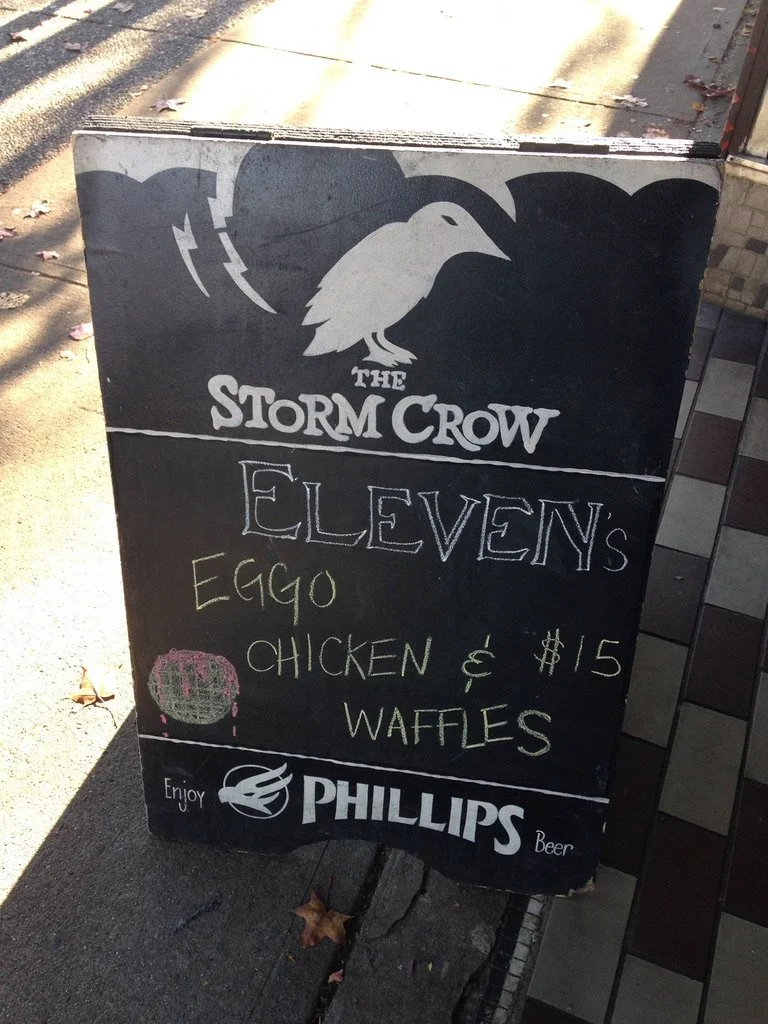 THE
STORM CROW
ELEVEN's
EGGO
CHICKEN & $15
WAFFLES
Enjoy PHILLIPS Beer